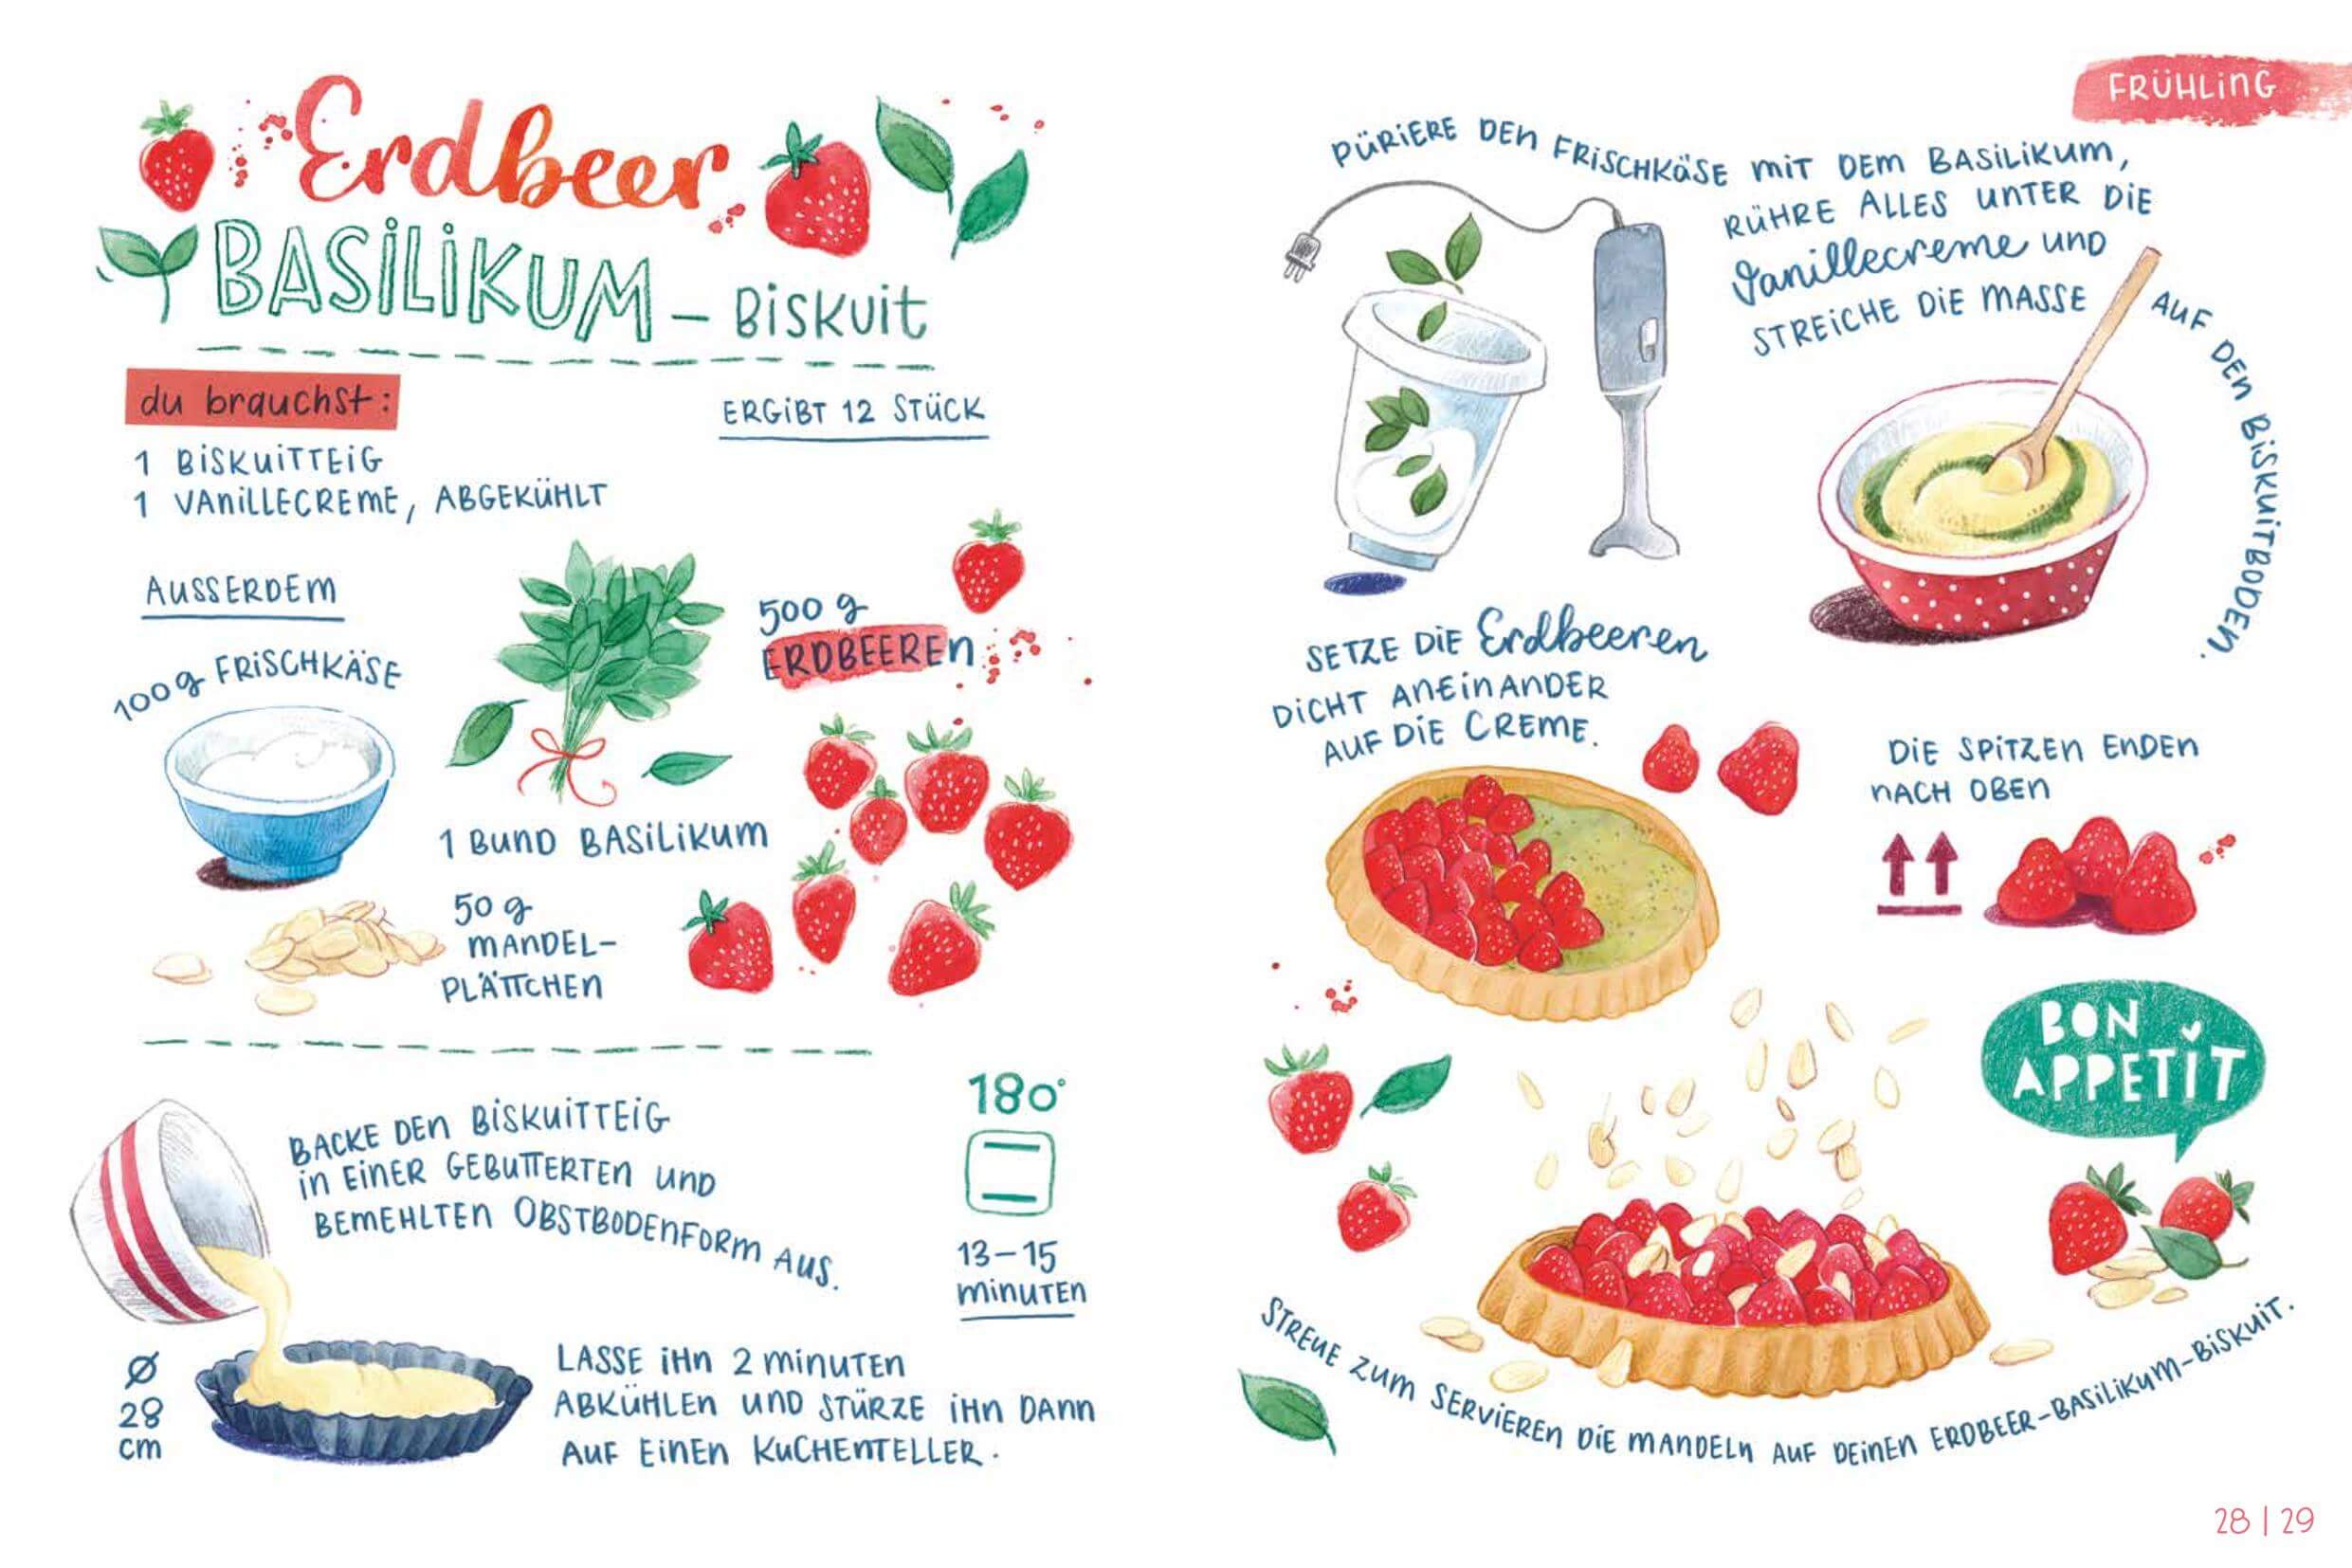 Erdbeer
BASILIKUM – BISKUIT
du brauchst:
ERGIBT 12 STÜCK
1 BISKUITTEIG
1 VANILLECREME, ABGEKÜHLT
AUSSERDEM
100 g FRISCHKÄSE
500 g
ERDBEEREN
1 BUND BASILIKUM
50 g
MANDEL-
PLÄTTCHEN
BACKE DEN BISKUITTEIG
IN EINER GEBUTTERTEN UND
BEMEHLTEN OBSTBODENFORM AUS.
180°
13–15
MINUTEN
Ø
28
cm
LASSE IHN 2 MINUTEN
ABKÜHLEN UND STÜRZE IHN DANN
AUF EINEN KUCHENTELLER.
FRÜHLING
PÜRIERE DEN FRISCHKÄSE MIT DEM BASILIKUM,
RÜHRE ALLES UNTER DIE
Vanillecreme UND
STREICHE DIE MASSE AUF DEN BISKUITBODEN.
SETZE DIE Erdbeeren
DICHT ANEINANDER
AUF DIE CREME.
DIE SPITZEN ENDEN
NACH OBEN
BON
APPETIT
STREUE ZUM SERVIEREN DIE MANDELN AUF DEINEN ERDBEER-BASILIKUM-BISKUIT.
28 | 29